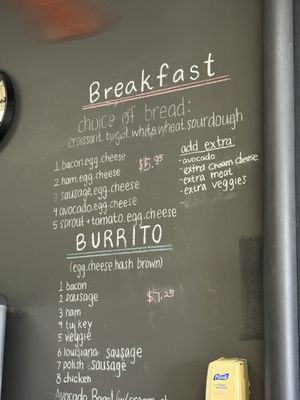 Breakfast
choice of bread:
croissant. bagel. white. wheat. sourdough
1 bacon.egg.cheese
2 ham.egg.cheese
3 sausage.egg.cheese
4 avocado.egg.cheese
5 sprout + tomato.egg.cheese
$5.95
add extra:
- avocado
- extra cream cheese
- extra meat
- extra veggies
BURRITO
(egg.cheese.hash brown)
1 bacon
2 sausage
3 ham
4 turkey
5 veggie
6 louisiana sausage
7 polish sausage
8 chicken
$7.25
Avocado Bagel (w/ cream